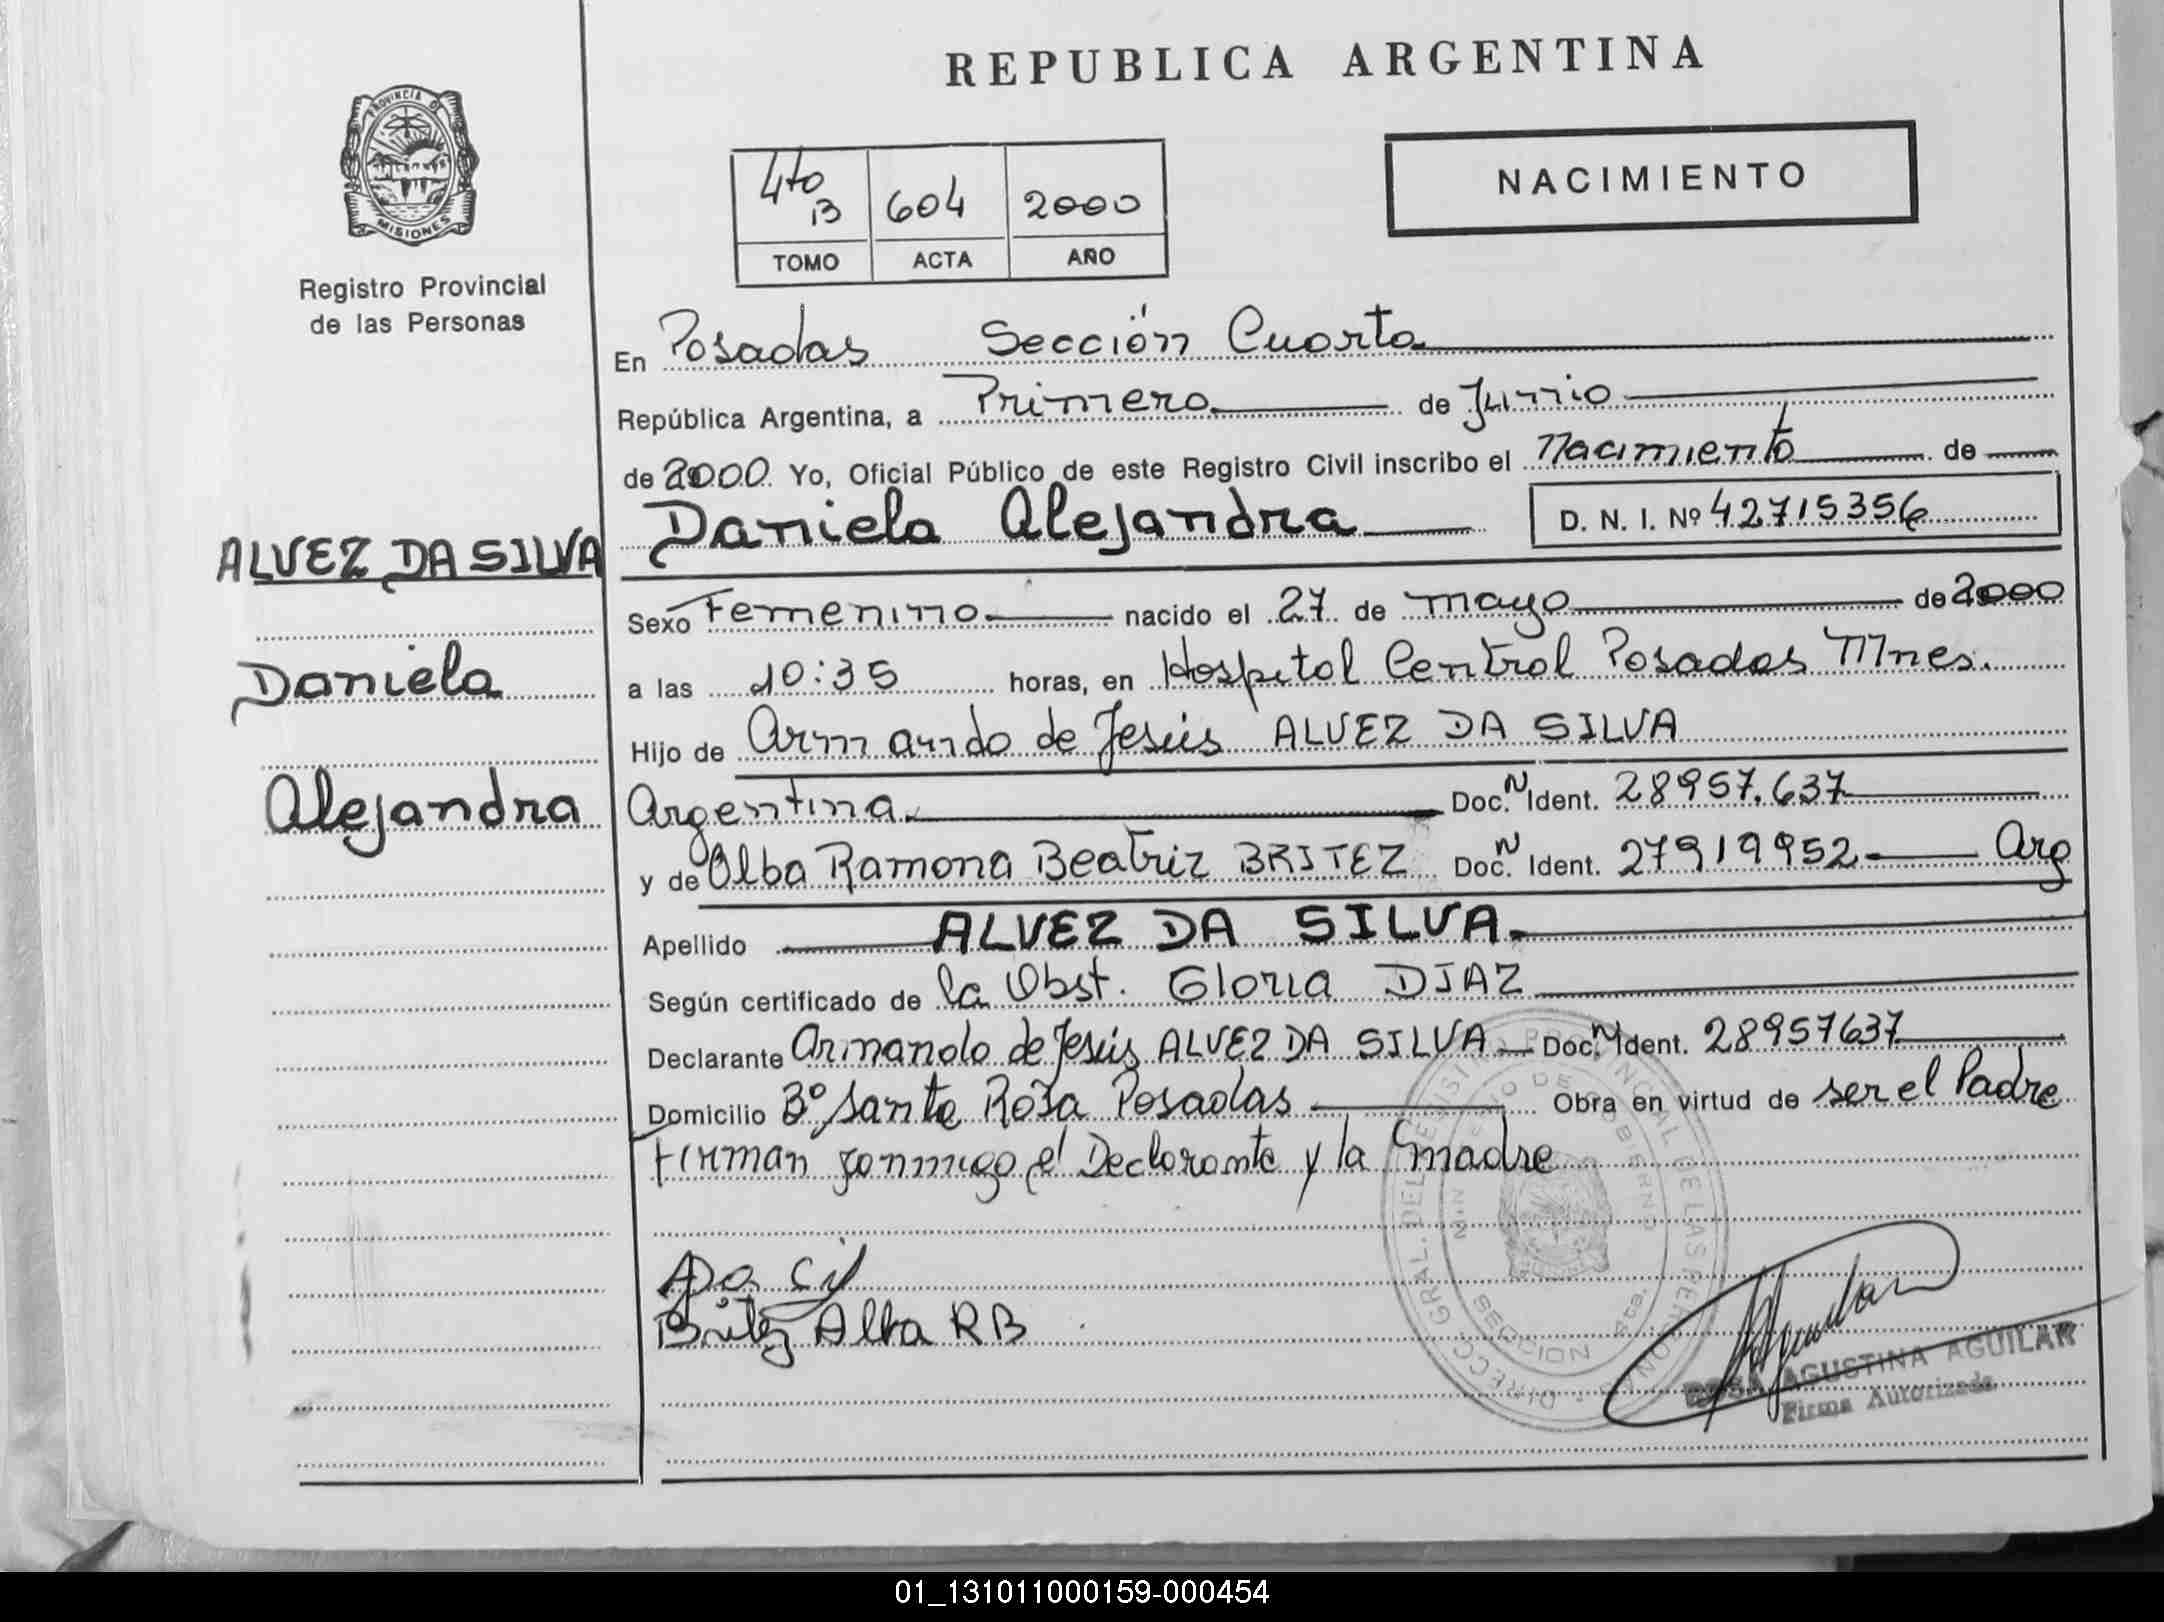 REPUBLICA ARGENTINA
PROVINCIA DE
MISIONES
Registro Provincial
de las Personas
4to B 604 2000
TOMO ACTA AÑO
NACIMIENTO
En Posadas Sección Cuarta
República Argentina, a Primero de Junio
de 2000 Yo, Oficial Público de este Registro Civil inscribo el Nacimiento de
ALVEZ DA SILVA
Daniela
Alejandra
Daniela Alejandra D. N. I. Nº 42715356
Sexo Femenino nacido el 27 de mayo de 2000
a las 10:35 horas, en Hospital Central Posadas Mnes.
Hijo de Armando de Jesús ALVEZ DA SILVA
Argentina Doc. N Ident. 28957.637
y de Alba Ramona Beatriz BRITEZ Doc. N Ident. 27919952 Arg
Apellido ALVEZ DA SILVA.
Según certificado de la Obst. Gloria DIAZ
Declarante Armando de Jesús ALVEZ DA SILVA Doc. N Ident. 28957637
Domicilio Bº Santa Rosa Posadas Obra en virtud de ser el Padre
Firman conmigo el Declarante y la madre
Britez Alba RB
DIRECC. GRAL. DEL REGISTRO PROVINCIAL DE LAS PERSONAS
MINISTERIO DE GOBIERNO
SECCION 4ta.
ROSA AGUSTINA AGUILAR
Firma Autorizada
01_131011000159-000454